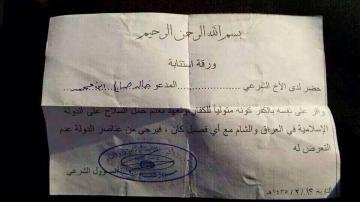 بسم الله الرحمن الرحيم
ورقة استتابة
حضر لدى الأخ الشرعي ........................ المدعو
وأقر على نفسه بالكفر كونه متولياً للكفار وتعهد بعدم حمل السلاح على الدولة
الإسلامية في العراق والشام مع أي فصيل كان ، فيرجى من عناصر الدولة عدم
التعرض له
المسؤول الشرعي
التاريخ ١٤٣٥ / ٢ / ١٢هـ